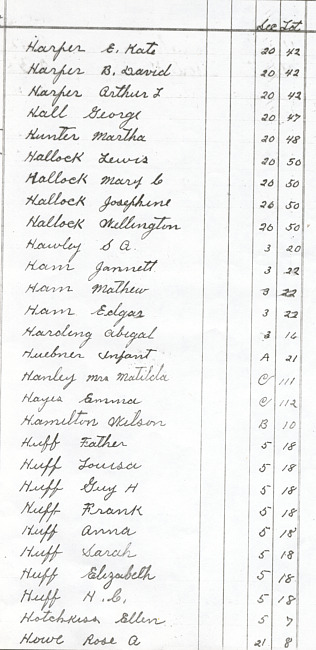 Sec Lot
Harper E. Kate 20 42
Harper B. David 20 42
Harper Arthur L 20 42
Hall George 20 47
Hunter Martha 20 48
Hallock Lewis 20 50
Hallock Mary C 20 50
Hallock Josephine 20 50
Hallock Wellington 20 50
Hawley S A. 3 20
Ham Jannett 3 22
Ham Mathew 3 22
Ham Edgar 3 22
Harding Abigal 3 16
Huebner Infant A 21
Hanley Mrs Matilda C 111
Hayes Emma C 112
Hamilton Wilson B 10
Huff Father 5 18
Huff Louisa 5 18
Huff Guy H 5 18
Huff Frank 5 18
Huff Anna 5 18
Huff Sarah 5 18
Huff Elizabeth 5 18
Huff H. C. 5 18
Hotchkiss Ellen 5 7
Howe Rose A 21 8